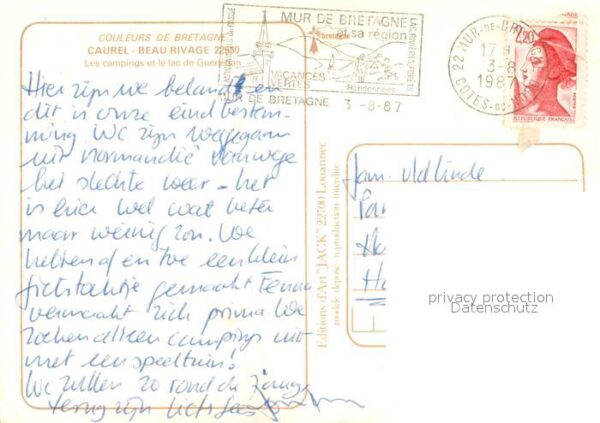 COULEURS DE BRETAGNE
CAUREL - BEAU RIVAGE 22530
Les campings et le lac de Guerlédan
MUR DE BRETAGNE
et sa région
bretagne
VACANCES
VERTES
Randonnées
MUR DE BRETAGNE 3-8-87
22 MUR-DE-BR
17 H
3-8
1987
COTES-DU-N
2,20
REPUBLIQUE FRANÇAISE
Hier zijn we beland en
dit is onze eind bestem-
ming We zijn weggegaan
uit normandië vanwege
het slechte weer - het
is hier wel wat beter
maar weinig zon. We
hebben af en toe een klein
fietstochtje gemaakt
vermaakt zich prima. We
zoeken alleen campings uit
met een speeltuin!
We zullen zo rond de
terug zijn liefs
Editions d'Art "JACK" 22700 Louannec
modèle déposé - reproduction interdite
Jan. vld Linde.
privacy protection
Datenschutz